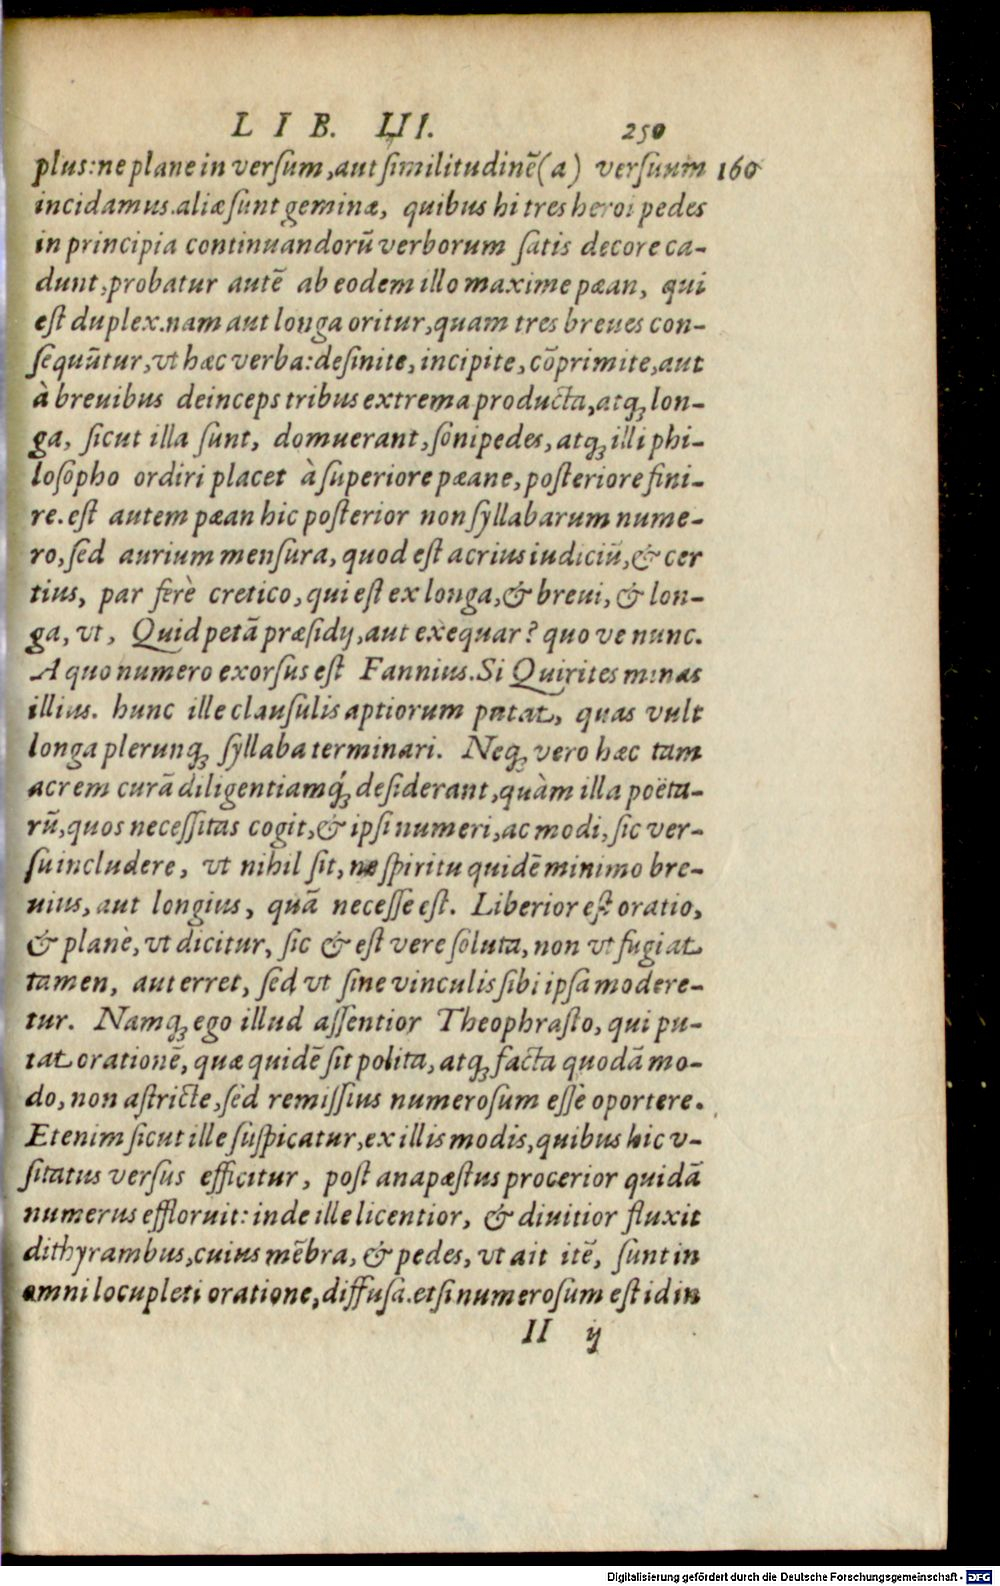 LIB. III. 250
plus: ne plane in versum, aut similitudinē (a) versuum 160
incidamus. aliæ sunt geminæ, quibus hi tres heroi pedes
in principia continuandorū verborum satis decore ca-
dunt, probatur autē ab eodem illo maxime pæan, qui
est duplex. nam aut longa oritur, quam tres breues con-
sequūtur, vt hæc verba: desinite, incipite, cōprimite, aut
à breuibus deinceps tribus extrema producta, atq; lon-
ga, sicut illa sunt, domuerant, sonipedes, atq; illi phi-
losopho ordiri placet à superiore pæane, posteriore fini-
re. est autem pæan hic posterior non syllabarum nume-
ro, sed aurium mensura, quod est acrius iudiciū, & cer
tius, par ferè cretico, qui est ex longa, & breui, & lon-
ga, vt, Quid petā præsidij, aut exequar? quo ve nunc.
A quo numero exorsus est Fannius. Si Quirites minas
illius. hunc ille clausulis aptiorum putat, quas vult
longa plerunq; syllaba terminari. Neq; vero hæc tam
acrem curā diligentiamq́; desiderant, quàm illa poëta-
rū, quos necessitas cogit, & ipsi numeri, ac modi, sic ver-
su includere, vt nihil sit, ne spiritu quidē minimo bre-
uius, aut longius, quā necesse est. Liberior est oratio,
& planè, vt dicitur, sic & est vere soluta, non vt fugiat
tamen, aut erret, sed vt sine vinculis sibi ipsa modere-
tur. Namq; ego illud assentior Theophrasto, qui pu-
tat orationē, quæ quidē sit polita, atq; facta quodā mo-
do, non astricte, sed remissius numerosum esse oportere.
Etenim sicut ille suspicatur, ex illis modis, quibus hic v-
sitatus versus efficitur, post anapæstus procerior quidā
numerus effloruit: inde ille licentior, & diuitior fluxit
dithyrambus, cuius mēbra, & pedes, vt ait itē, sunt in
omni locupleti oratione, diffusa. etsi numerosum est id in
II ij
Digitalisierung gefördert durch die Deutsche Forschungsgemeinschaft - DFG